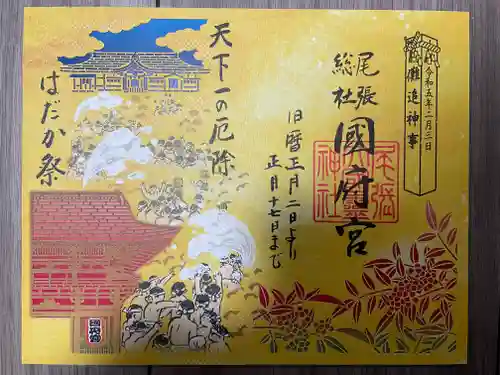 儺追神事
令和五年二月三日
尾張
総社
國府宮
尾張
國府宮
神社
旧暦正月二日より
正月十七日まで
天下一の厄除
はだか祭
國府宮